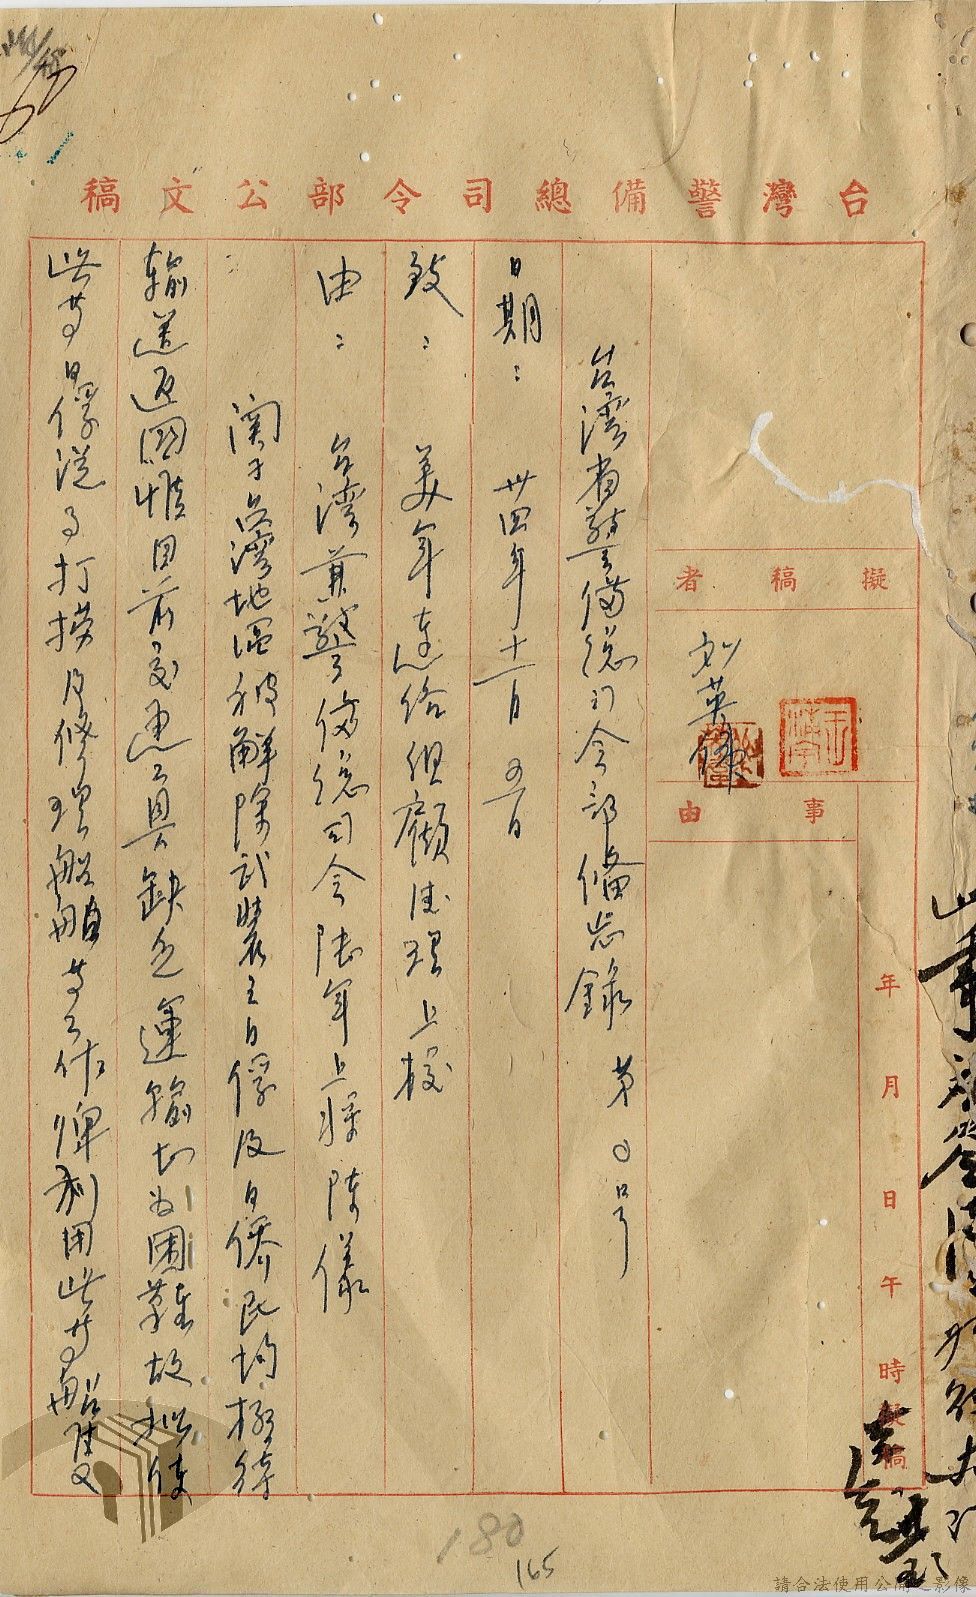 台灣警備總司令部公文稿
擬稿者
事由
年月日午時擬稿
台灣省警備總司令部備忘錄 第 号
日期：卅四年十一月 日
致：美軍連絡組顧德理上校
由：台灣兼警備總司令陸軍上將陳儀
関于台灣地區被解除武裝之日俘及日僑民均極待
輸送返國惟目前交通工具缺乏運輸切為困難故擬使
此等日俘從事打撈及修理船舶等工作俾利用此等船隻
180
165
請合法使用公開之影像